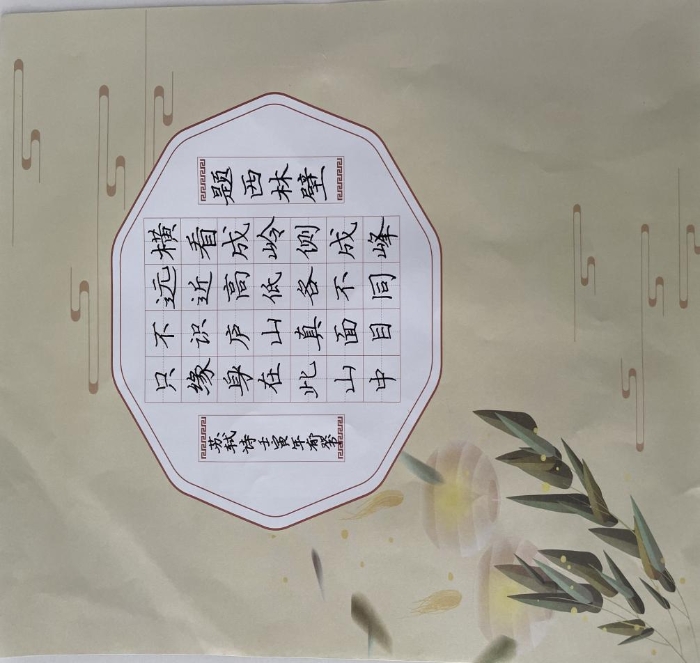 题西林壁
横看成岭侧成峰
远近高低各不同
不识庐山真面目
只缘身在此山中
苏轼诗壬寅年